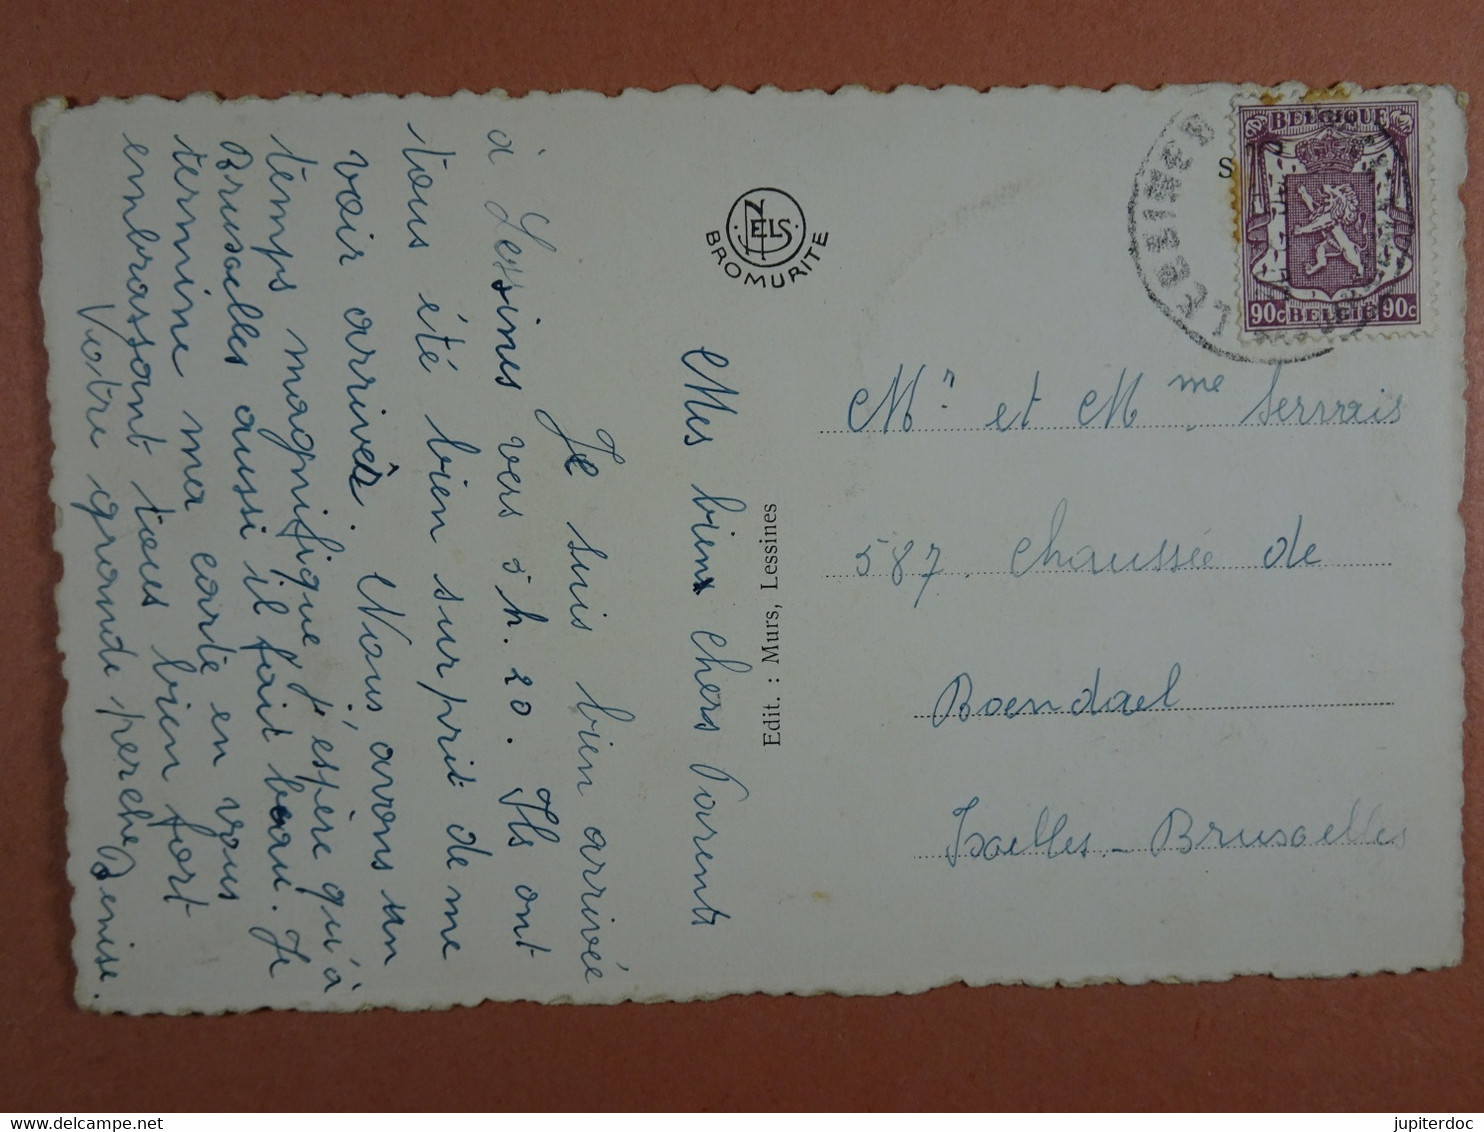 Mes bien chers Parents
Je suis bien arrivée
à Lessines vers 5 h. 20. Ils ont
tous été bien surprit de me
voir arrivér. Nous avons un
temps magnifique j'espère qu'à
Bruxelles aussi il fait beau. Je
termine ma carte en vous
embrassant tous bien fort
Votre grande perche Denise.
NELS
BROMURITE
Edit. : Murs, Lessines
LESSINES
S
BELGIQUE
90c BELGIË 90c
Mr. et Mme Serrais
587, Chaussée de
Boendael
Ixelles - Bruxelles
delcampe.net
jupiterdoc